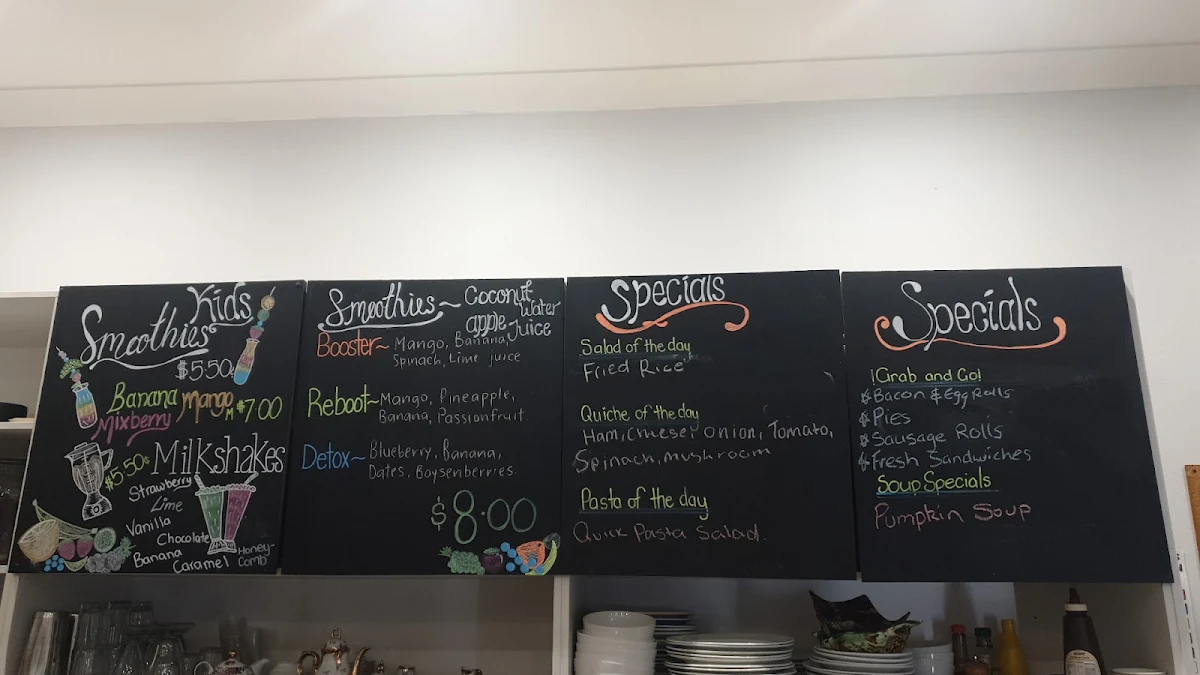 Kids
Smoothies
$5.50s
Banana Mango
Mixberry M $7.00
$5.50s Milkshakes
Strawberry
Lime
Vanilla
Chocolate
Banana
Caramel
Honey-
Comb
Smoothies~ Coconut Water
apple Juice
Booster~ Mango, Banana,
Spinach, Lime juice
Reboot~ Mango, Pineapple,
Banana, Passionfruit
Detox~ Blueberry, Banana,
Dates, Boysenberries.
$8.00
Specials
Salad of the day
Fried Rice
Quiche of the day
Ham, Cheese, Onion, Tomato,
Spinach, mushroom
Pasta of the day
Quick Pasta Salad.
Specials
!Grab and Go!
Bacon & Egg Rolls
Pies
Sausage Rolls
Fresh Sandwiches
Soup Specials
Pumpkin Soup